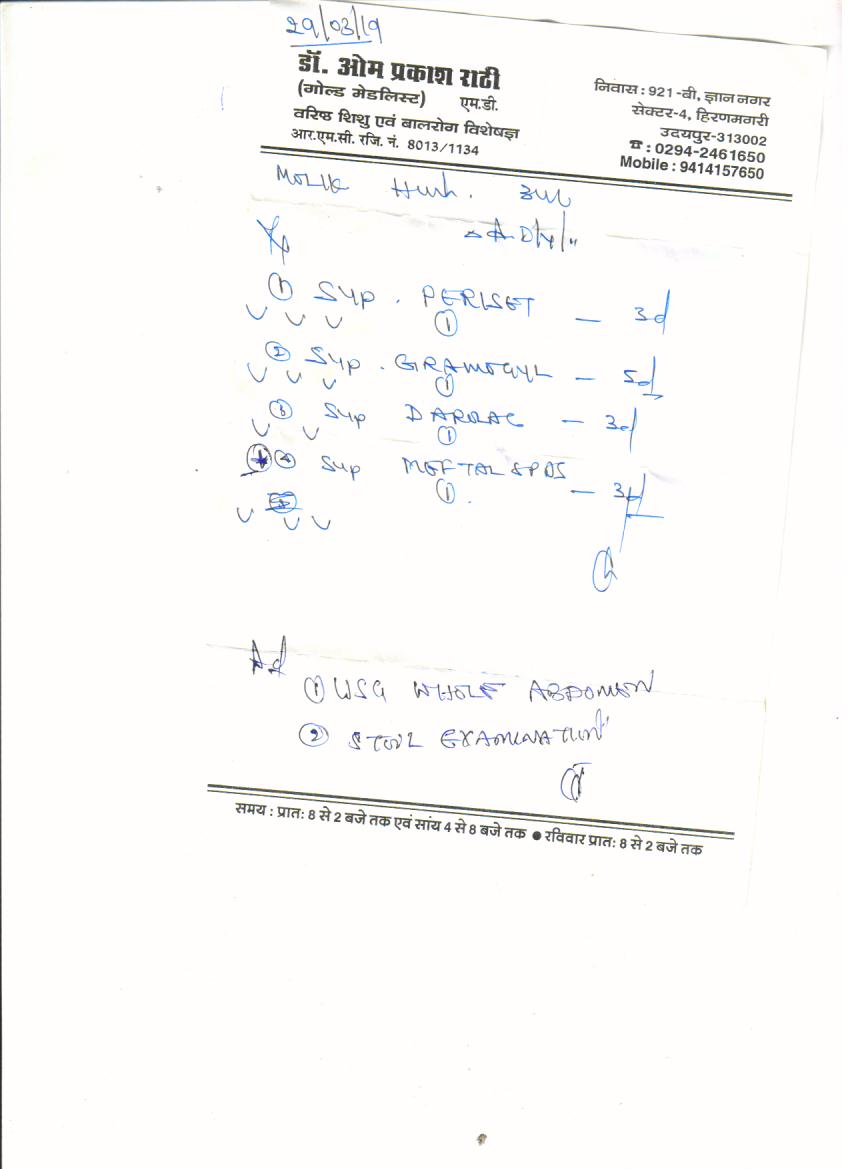 29/03/19
डॉ. ओम प्रकाश राठी
(गोल्ड मेडलिस्ट) एम.डी.
वरिष्ठ शिशु एवं बालरोग विशेषज्ञ
आर.एम.सी. रजि. नं. 8013/1134
निवास : 921-बी, ज्ञान नगर
सेक्टर-4, हिरणमगरी
उदयपुर-313002
☎ : 0294-2461650
Mobile : 9414157650
MOLIK
① Syp. PERISET — 3d
①
② Syp. GRAMOGYL — 5d
①
③ Syp DAROLAC — 3d
①
④ Syp MEFTAL SPAS — 3d
①
Ad
① USG WHOLE ABDOMEN
② STOOL EXAMINATION
समय : प्रातः 8 से 2 बजे तक एवं सांय 4 से 8 बजे तक ● रविवार प्रातः 8 से 2 बजे तक